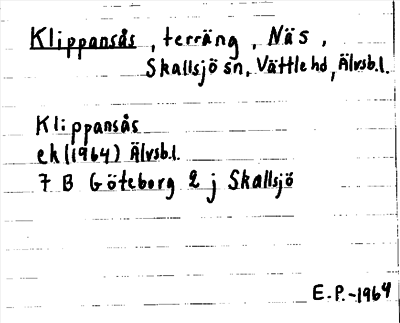 Klippansås, terräng, Näs,
Skallsjö sn, Vättle hd, Älvsb.l.
Klippansås
ek (1964) Älvsb.l.
7 B Göteborg 2 j Skallsjö
E.P.-1964